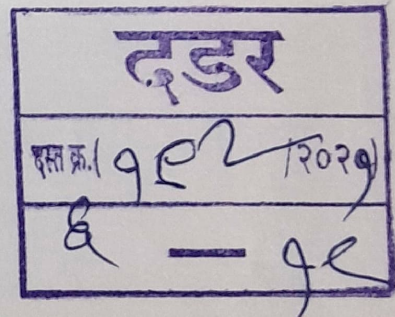 दडर
दस्त क्र.( १९२ /२०२१)
६ — १९